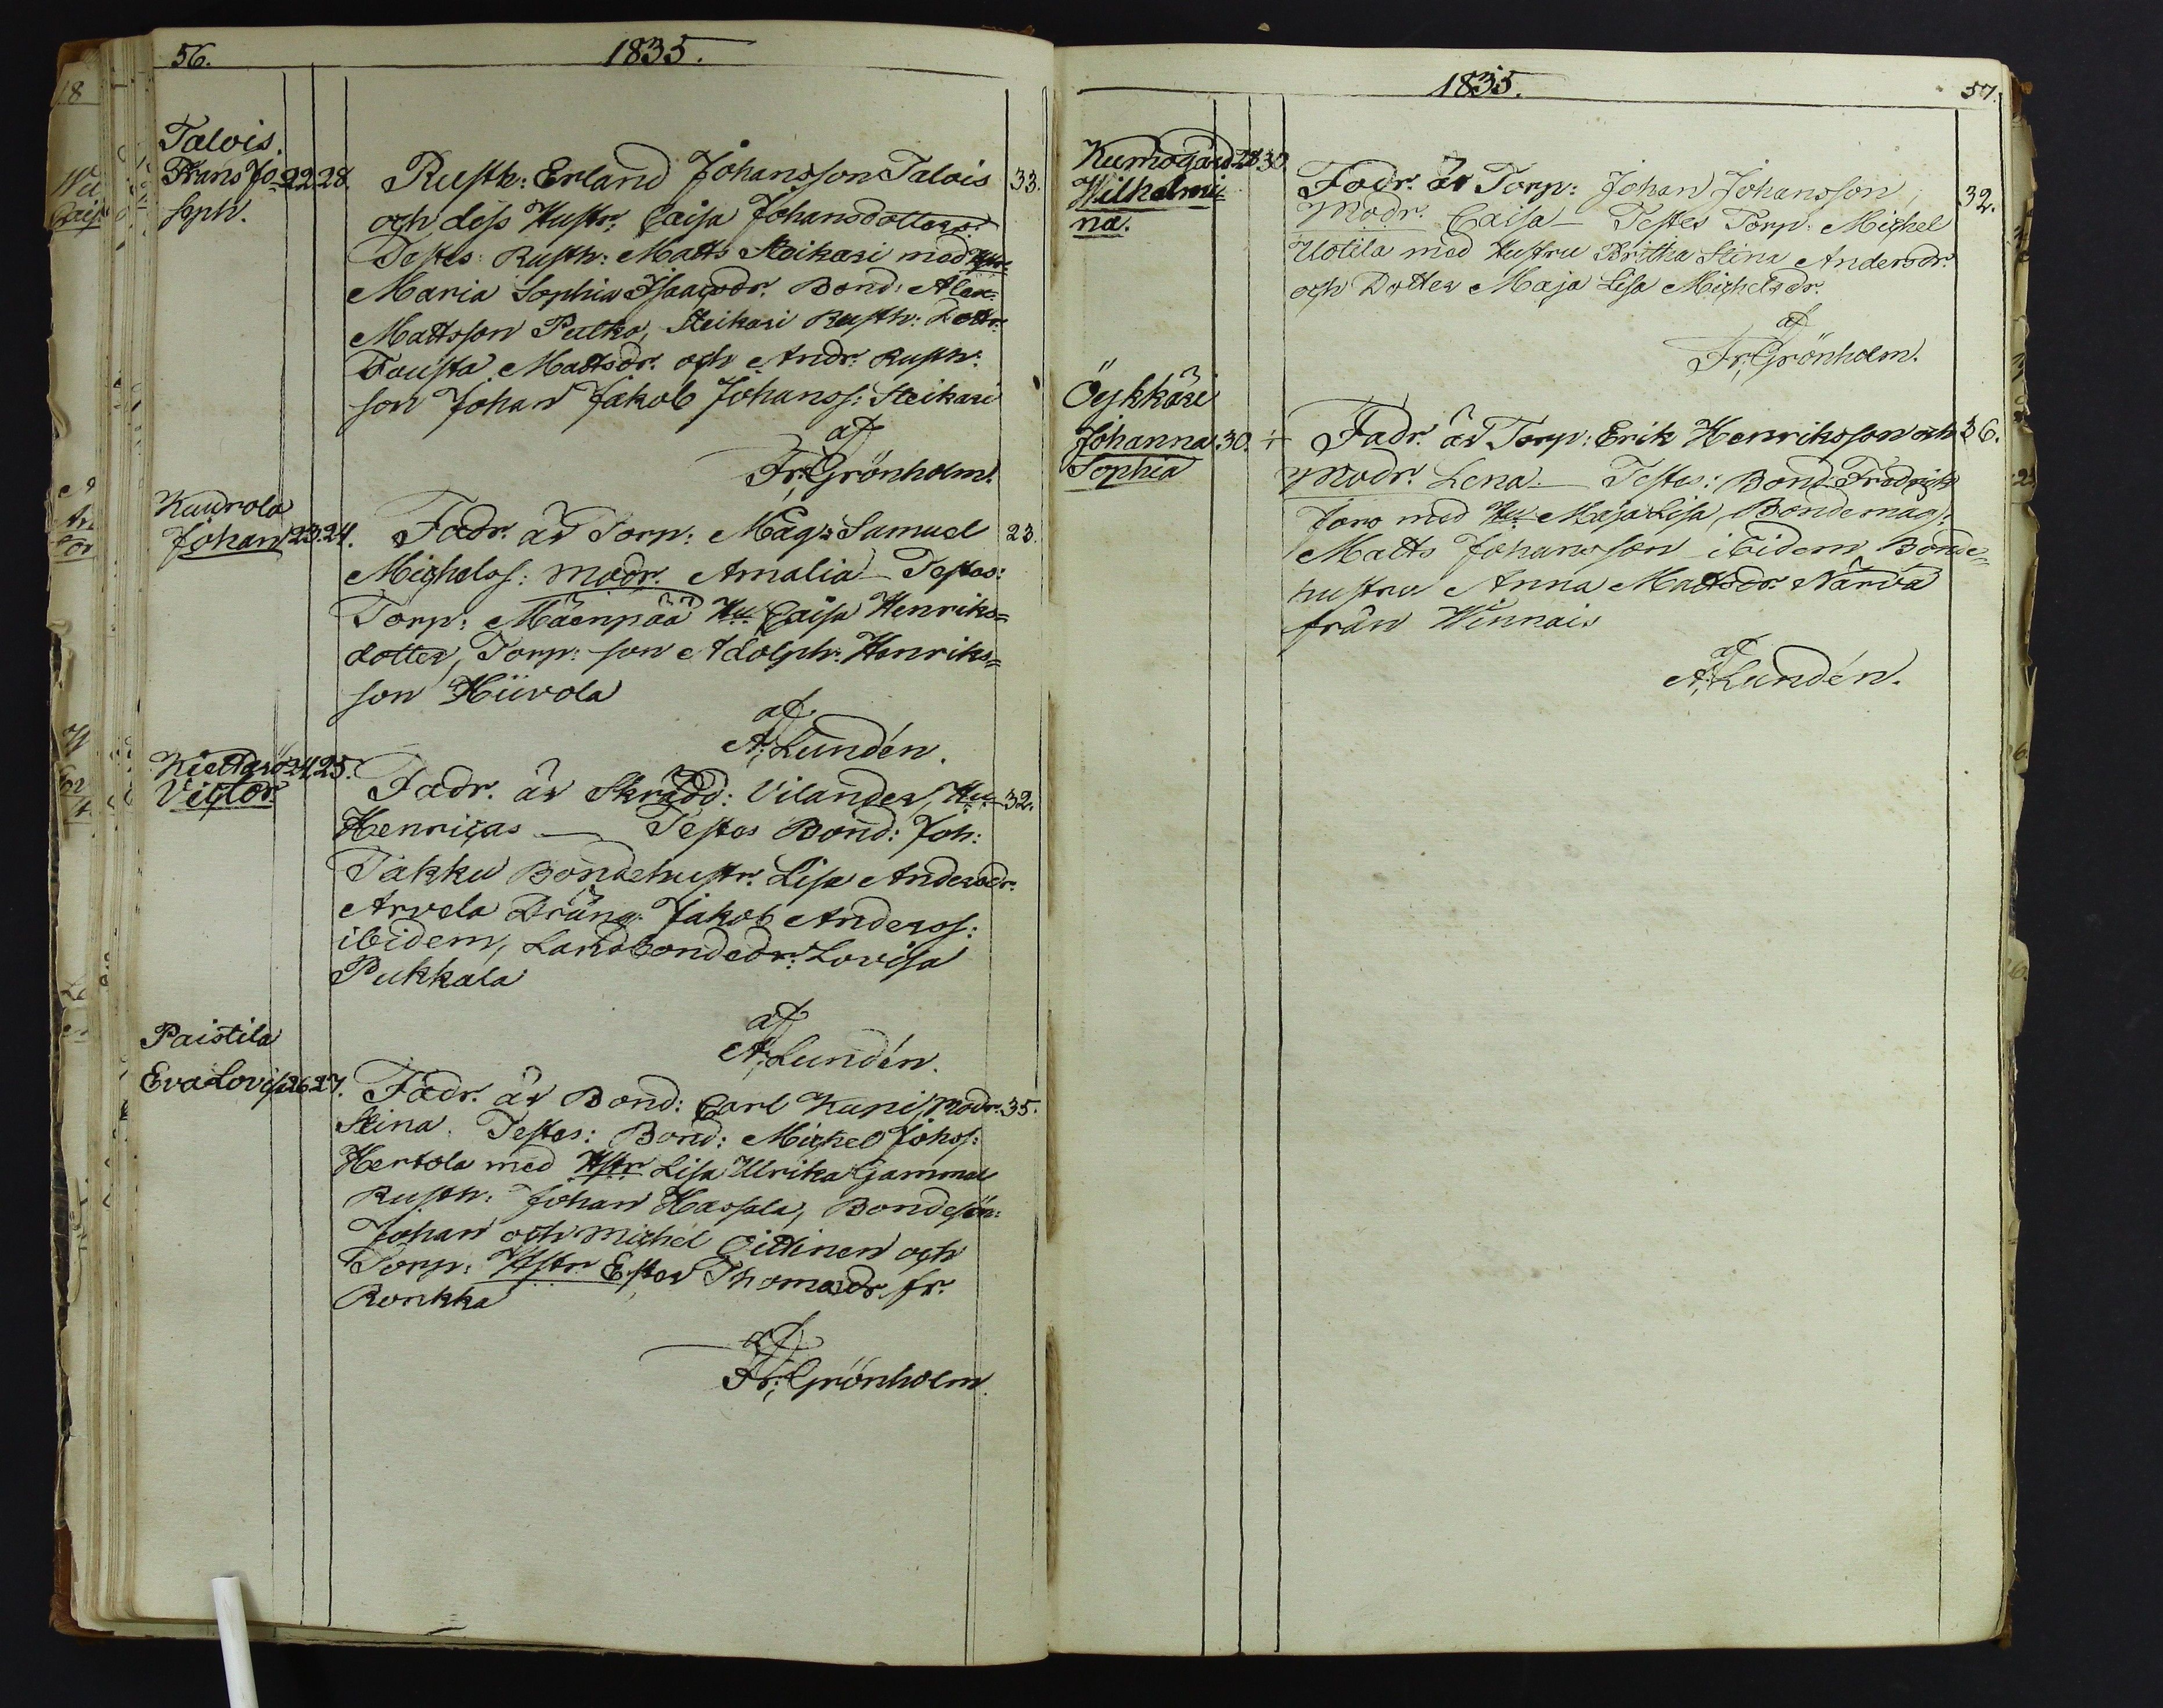 56.
1835.
Talvis.
Frans Jo=
seph.
22 28.
Rusth: Erland Johansson Talvis
33.
och dess Hustr: Caisa Johansdotter.
Testes: Rusth: Matts Steikari med Hu
Maria Sophia Isaacsdr. Bond: Alex:
Mattsson Pultka, Steikari Rusth: Dottr:
Fausta Mattsdr. och Andr: Rusth:
son Johan Jakob Johanss: Steikari
af
Fr: Grönholm.
Kaurola
Johan
23. 24.
Fadr. är Torp: Måg: Samuel
23.
Michelss: Modr. Amalia – Testes:
Torp: Mäenpää Hu Caisa Henriks=
dotter, Torp: son Adolph: Henriks=
son Hiivola
af
A: Lundén.
Kiettarö
Victor
24. 25.
Fadr. är Skrädd: Vilander, Hu
32.
Henricas — Testes Bond: Joh:
Takku Bondehustr. Lisa Andersdr.
Arvela Dräng: Jakob Anderss:
ibidem, Landbondedr: Lovisa
Pukkala
af
A: Lundén.
Paistila
Eva Lovisa
26 27.
Fadr. är Bond: Carl Kuni, Modr.
35.
Stina. Testes: Bond: Michel Johss:
Hertola med Hstr Lisa Ulrika Gammal
Rusth: Johan Hassala, Bondesön:
Johan och Michel Oittinen och
Torp: Hstr Ester Thomasdr. fr.
Ronkka
af
Fr: Grönholm.
1835.
57.
Kumogård
Wilhelmi=
na.
28 30
Fadr. är Torp: Johan Johansson,
32.
Modr. Caisa – Testes Torp: Michel
Uotila med Hustru Britha Stina Andersdr.
och Dotter Maja Lisa Michelsdr.
af
Fr: Grönholm.
Öykkäri
Johanna
Sophia
30. +
Fadr. är Torp: Erik Henriksson och
36.
Modr. Lena. – Testes: Bond: Fredrich
Joro med Hu Maja Lisa, Bondemåg:
Matts Johansson ibidem, Bonde=
hustru Anna Mattsdr. Närvä
från Winnais
af
A: Lundén.